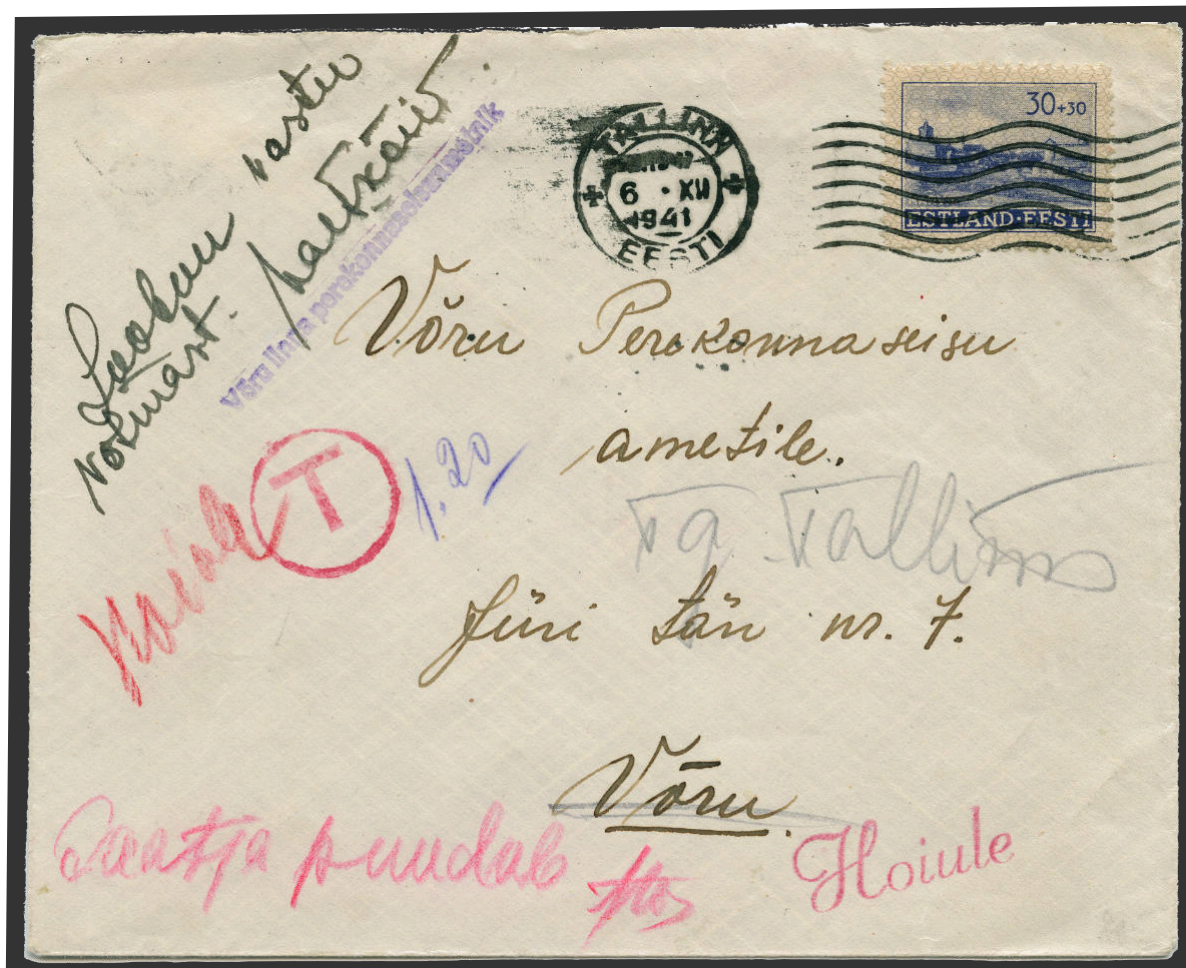 vastu
Võru linna perekonnaseisuametnik
TALLINN
6 · XII
1941
EESTI
30+30
ESTLAND·EESTI
Võru Perekonnaseisu
ametile.
T
1.20
Tallinn
Jüri tän nr. 7.
Võru.
Saatja puudub
Hoiule